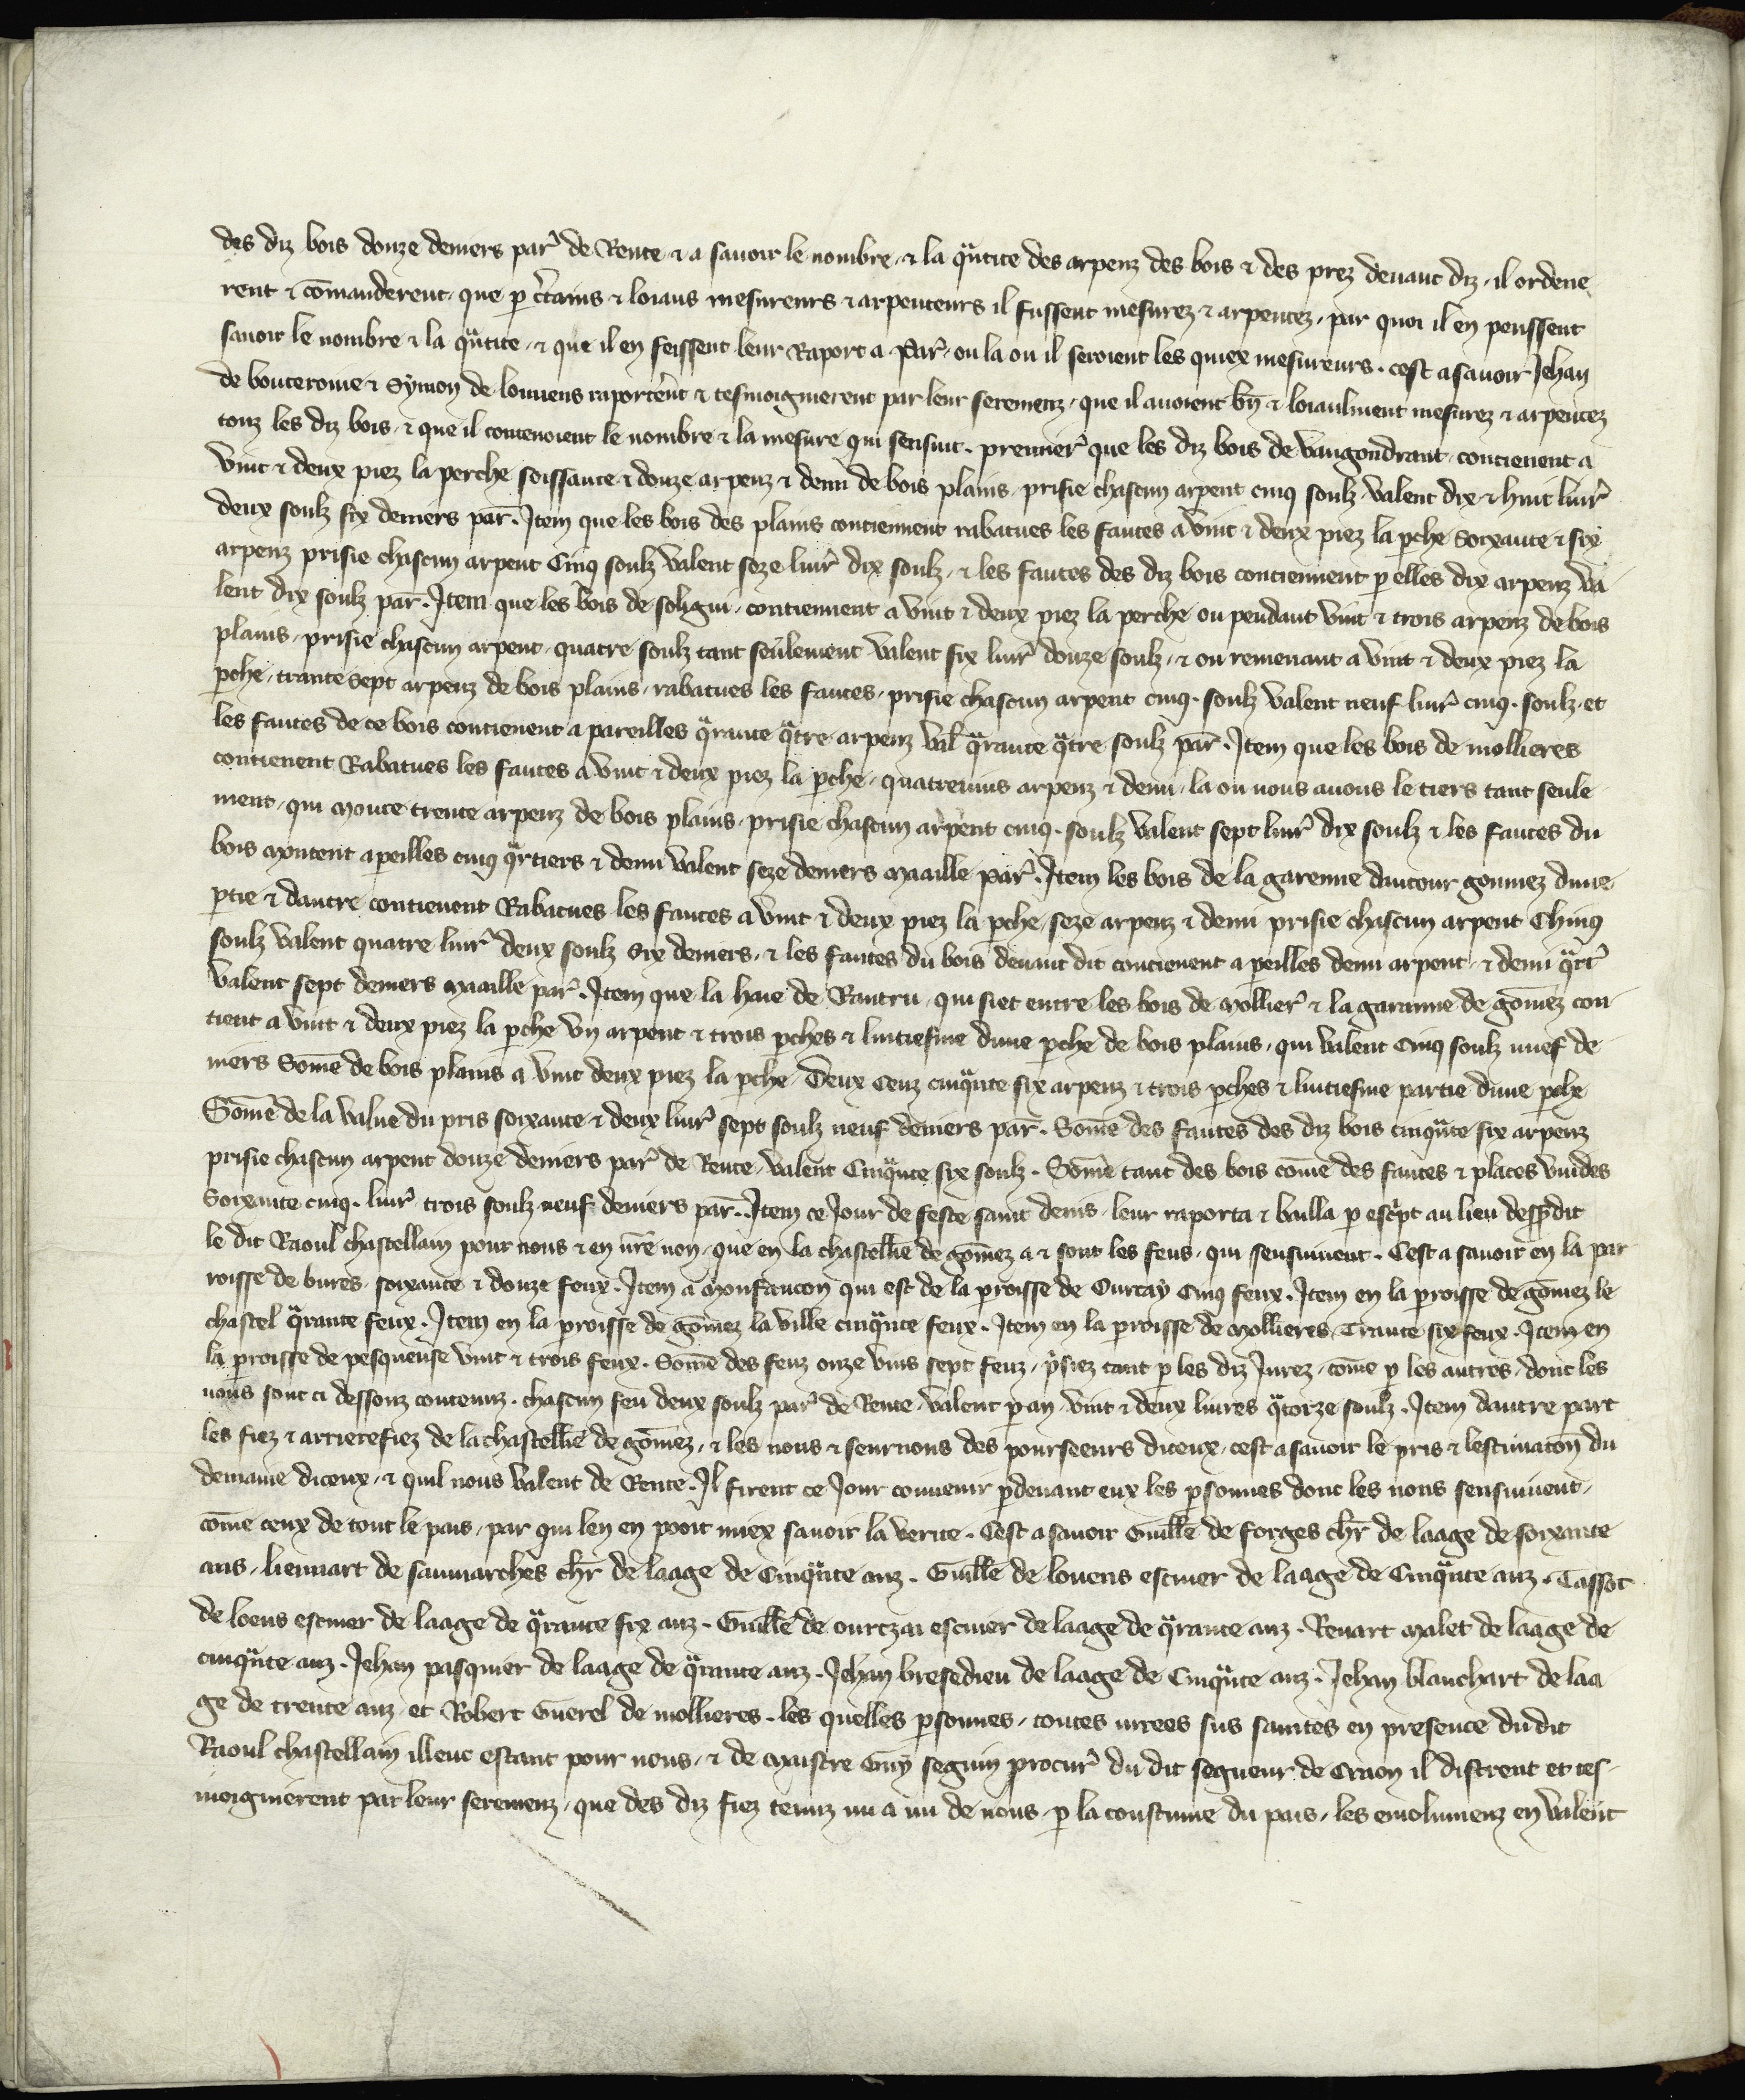 des diz bois douze deniers par̉ de Rente ⁊ a savoir le nombre ⁊ la qᵃntite des arpenz des bois ⁊ des prez devant diz, il ordene
rent ⁊ cōmanderent, que p c̉tains ⁊ loiaus mesureurs ⁊ arpenteurs il fussent mesurez ⁊ arpentez, par quoi il en peussent
savoir le nombre ⁊ la qᵃntite, ⁊ que il en feissent leur Raport a Par̉, ou la ou il seroient les quiex mesureurs. cest asavoir Jehan
de bouteroüe ⁊ Symon de louvens raportēr̉t ⁊ tesmoignierent par leur seremenz, que il avoient bn̄ ⁊ loiaulment mesurez ⁊ arpentez
touz les diz bois, ⁊ que il contenoient le nombre ⁊ la mesure qui sensuit. premier̉ que les diz bois de vaugondrant contienent a
vint ⁊ deux piez la perche soissante ⁊ douze arpenz ⁊ demi de bois plains, prisie chascun arpent cinq soulz valent dix ⁊ huit livr̉
deux soulz six deniers par̄. Item que les bois des plains contiennent rabatues les fautes a vint ⁊ deux piez la pche Soixante ⁊ six
arpenz prisie chascun arpent Cinq soulz valent seze livr̉ dix soulz, ⁊ les fautes des diz bois contiennent p elles dix arpenz va
lent dix soulz par̄. Item que les bois de soligni, contiennent a vint ⁊ deux piez la perche ou pendant vint ⁊ trois arpenz de bois
plains, prisie chascun arpent, quatre soulz tant seulement valent six livr̉ douze soulz, ⁊ ou remenant a vint ⁊ deux piez la
pche, trante sept arpenz de bois plains, rabatues les fautes, prisie chascun arpent cinq. soulz valent neuf livr̉ cinq. soulz, et
les fautes de ce bois contienent a pareilles qᵃrante qᵃtre arpenz val̄ qᵃrante qᵃtre soulz par̄. Item que les bois de mollieres
contienent Rabatues les fautes a vint ⁊ deux piez la pche, quatrevins arpenz ⁊ demi, la ou nous avons le tiers tant seule
ment, qui monte trente arpenz de bois plains, prisie chascun arpent cinq. soulz valent sept livr̉ dix soulz ⁊ les fautes du
bois montent apeilles cinq qᵃrtiers ⁊ demi valent seze deniers maaille par̉. Item les bois de la garenne dentour goumez dune
ptie ⁊ dautre contienent Rabatues les fautes a vint ⁊ deux piez la pche, seze arpenz ⁊ demi prisie chascun arpent Chinq
soulz valent quatre livr̉ deux soulz Six deniers, ⁊ les fautes du bois devant dit contienent a peilles demi arpent, ⁊ demi qᵃrt̉
valent sept deniers maaille par̉. Item que la haie de Rantru, qui siet entre les bois de mollier̉ ⁊ la garanne de gōmez con
tient a vint ⁊ deux piez la pche un arpent ⁊ trois pches ⁊ luitiesme dune pche de bois plains, qui valent Cinq soulz nuef de
niers Sōme de bois plains a vint deux piez la pche, Deux cenz cinqᵃnte six arpenz ⁊ trois pches ⁊ luitiesme partie dune pche
Sōme de la value du pris soixante ⁊ deux livr̉ sept soulz neuf deniers par̄. Sōme des fautes des diz bois cinqᵃnte six arpenz
prisie chascun arpent douze deniers par̉ de Rente, valent Cinqᵃnte six soulz. Sōme tant des bois cōme des fautes ⁊ places vuides
Soixante cinq. livr̉ trois soulz neuf deniers par̄. Item ce Jour de feste saint denis, leur raporta ⁊ bailla p escᵖt au lieu dessᵘdit
le dit Raoul chastellain pour nous ⁊ en nr̄e non, que en la chastelle̅ie de gōmez a ⁊ sont les feus, qui sensuivent. Cest a savoir en la par
roisse de bures, soixante ⁊ douze feux. Item a Monfaucon qui est de la proisse de Ourcay Cinq feux. Item en la proisse de gōmez le
chastel qᵃrante feux. Item en la proisse de gōmez la ville cinqᵃnte feux. Item en la proisse de mollieres Trante six feux. Item en
la proisse de pesqueuse vint ⁊ trois feux. Sōme des feuz onze vins sept feuz, pͥsiez tant p les diz Jurez, cōme p les autres, dont les
nons sont ci dessouz contenuz. chascun feu deux soulz par̉ de Rente, valent p an, vint ⁊ deux livres qᵃtorze soulz. Item dautre part
les fiez ⁊ arrierefiez de la chastelle̅ie de gōmez, ⁊ les nons ⁊ seurnons des pourseeurs diceux, cest asavoir le pris ⁊ lestimatōn du
demaine diceux, ⁊ quil nous valent de Rente. Il firent ce Jour convenir pdevant eux les psonnes dont les nons sensuivent,
cōme ceux de tout le pais, par qui len en pooit miex savoir la verite. Cest asavoir Guille̅ de forges chr̄ de laage de soixante
ans, lienart de saumarches chr̄ de laage de Cinqᵃnte anz. Guille̅ de lovens escuier de laage de Cinqᵃnte anz. Tassot
de loens escuier de laage de qᵃrante six anz. Guille̅ de ourczai escuier de laage de qᵃrante anz. Renart Malet de laage de
cinqᵃnte anz. Jehan pasquier de laage de qᵃrante anz. Jehan bresedieu de laage de Cinqᵃnte anz. Jehan blanchart de laa
ge de trente anz, et Robert Guerel de mollieres. les quelles psonnes, toutes iurees sus saintes en presence dudit
Raoul chastellain illeuc estant pour nous, ⁊ de maistre Guy seguin procur̉ du dit segneur de Craon il distrent et tes-
moignierent par leur seremenz, que des diz fiez tenuz nu a nu de nous, p la coustume du pais, les emolumenz en valent